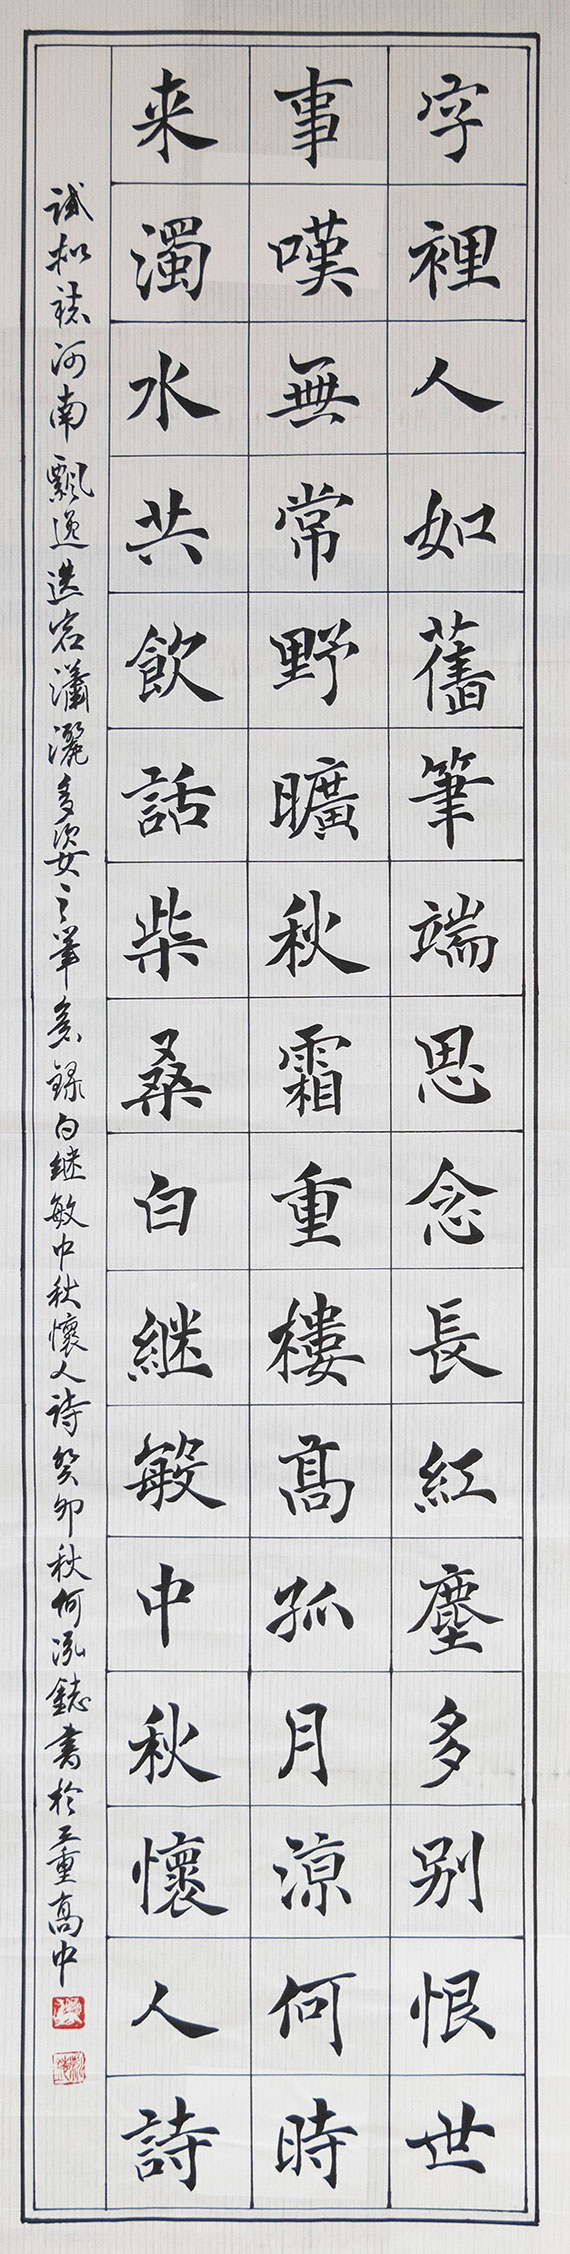 字裡人如舊筆端思念長紅塵多别恨世
事嘆無常野曠秋霜重樓高孤月涼何時
来濁水共飲話柴桑白継敏中秋懷人詩
試拟褚河南飄逸遒宕瀟灑多姿之筆意錄白继敏中秋懷人詩癸卯秋何泓鋕書於三重高中